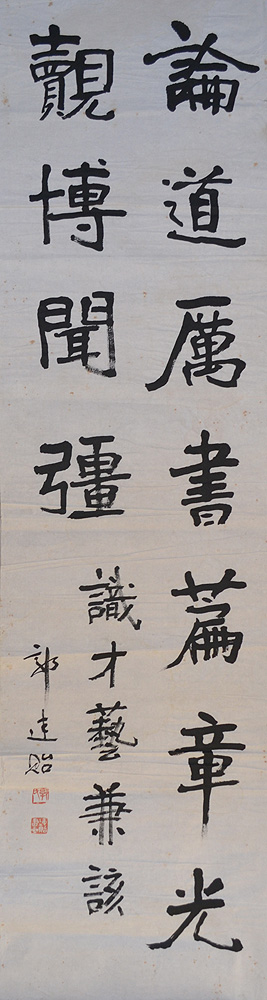 論道厲書篇章光
覿博聞彊
識才藝兼該
郭連貽